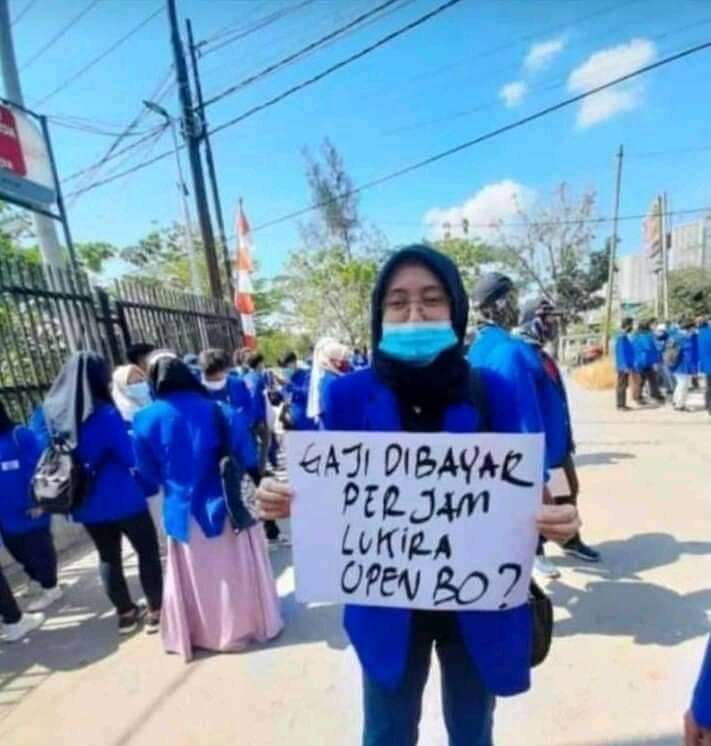 GAJI DIBAYAR
PER JAM
LUKIRA
OPEN BO?